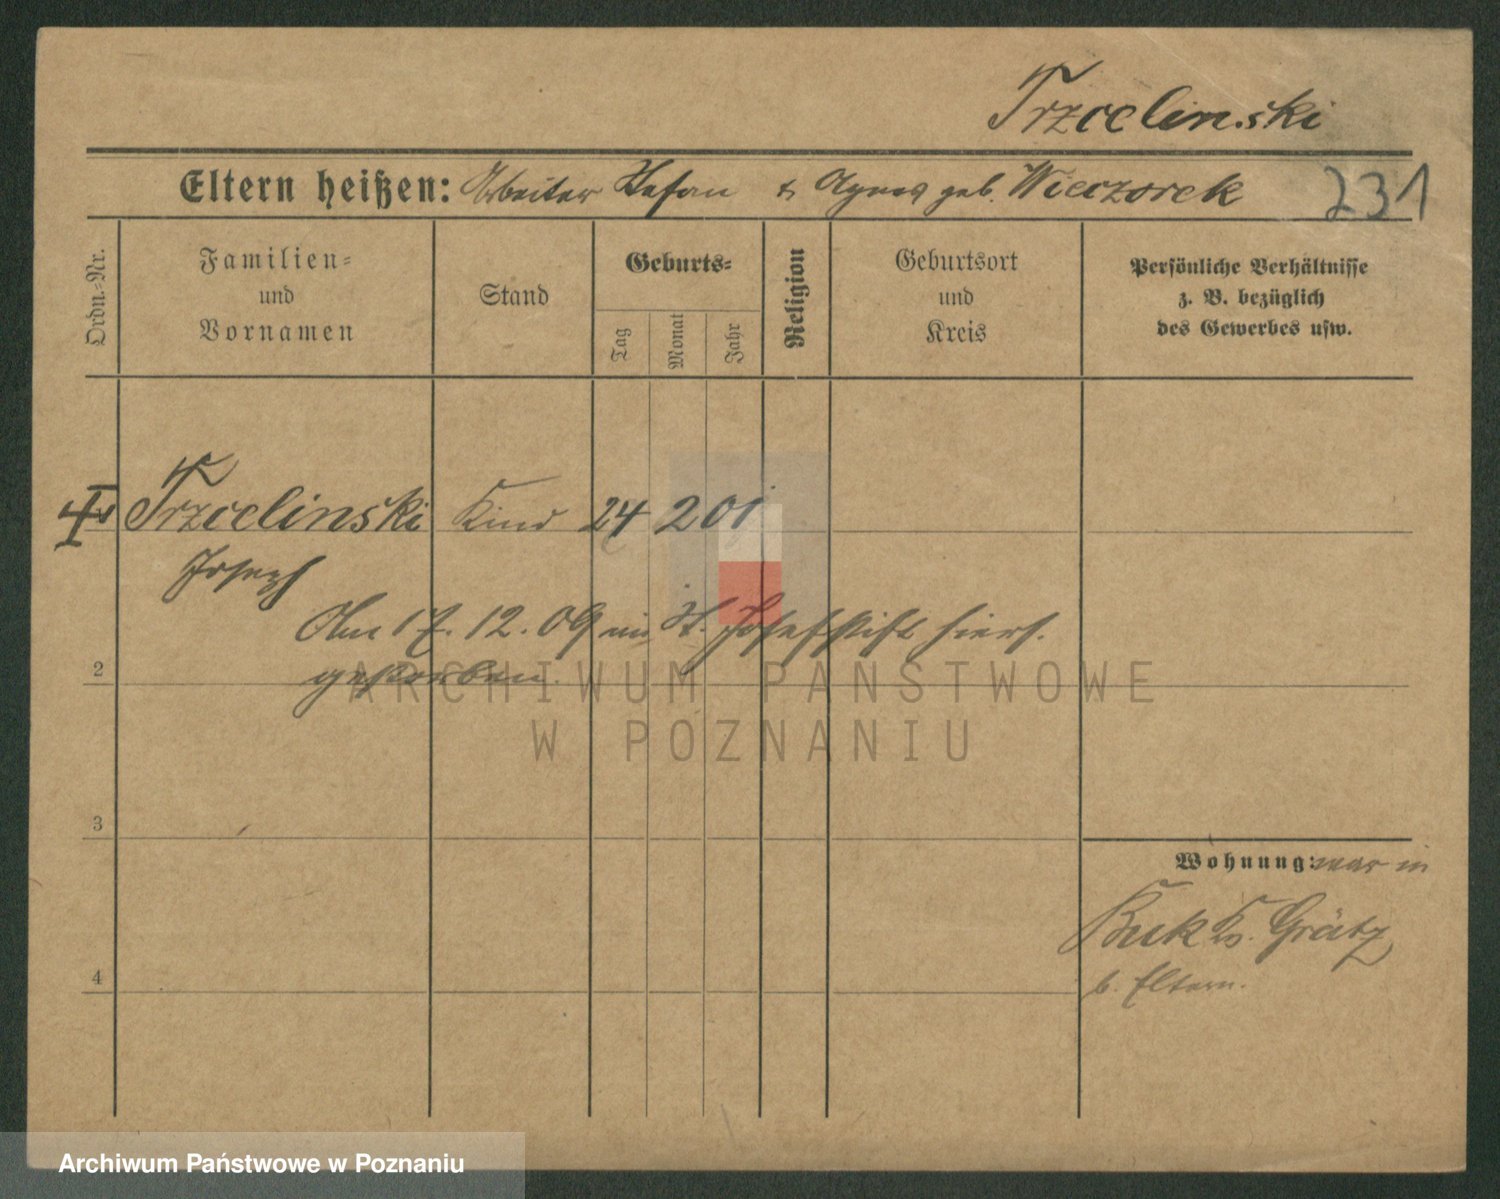 Trzcelinski
Eltern heißen: Arbeiter Stefan & Agnes geb. Wieczorek
231
Ordn.-Nr.
Familien-
und
Vornamen
Stand
Geburts-
Tag
Monat
Jahr
Religion
Geburtsort
und
Kreis
Persönliche Verhältnisse
z. B. bezüglich
des Gewerbes usw.
Trzcelinski Kind 24 2 01
Joseph
Am 17. 12. 09 im St. Josefstift hiers.
2
gestorben.
ARCHIWUM PAŃSTWOWE
W POZNANIU
3
Wohnung: war in
Buk Kr. Grätz
4
b. Eltern.
Archiwum Państwowe w Poznaniu